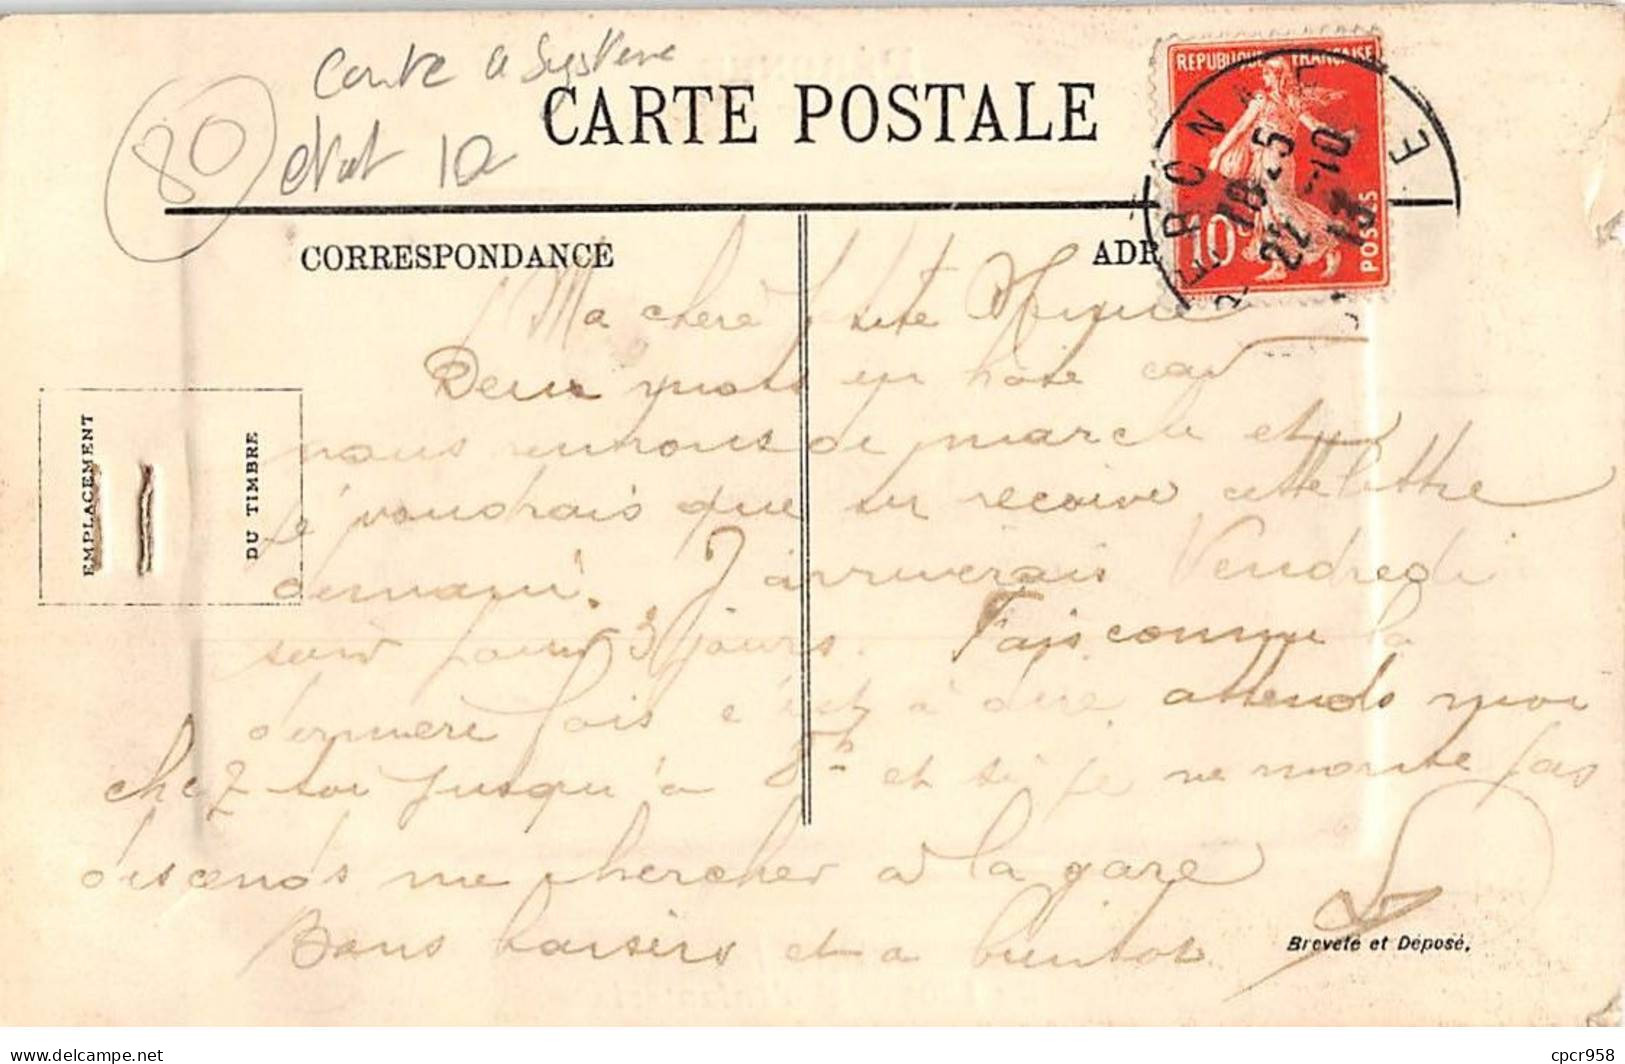 Carte a Système
80
etat 10
CARTE POSTALE
REPUBLIQUE FRANÇAISE
10
POSTES
18 25
22 -10
13
CORRESPONDANCE
ADR
EMPLACEMENT
DU TIMBRE
Ma chère petite
Deux mots en hâte car
nous de marche et
je voudrais que tu recoive cette lettre
demain. J'arriverais Vendredi
soir pour 3 jours. Fais comme la
dernière fois c'est à dire attends moi
chez toi jusqu'à 8h et si je ne monte pas
descends me chercher à la gare
Bons baisers et a bientot
Breveté et Déposé.
www.delcampe.net
cpcr958